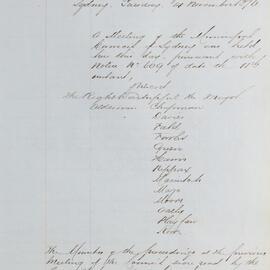 Sydney, Tuesday, 
A Meeting of the Municipal
Council of Sydney was held
this day, pursuant with
Notice No 609 of date the 11th
instant,
Present
The Right Worshipful the Mayor
Aldermen Chapman
Davies
Fowler
Green
Harris
Kippax
Macintosh
Moore
Playfair
The Minutes of the proceedings at the previous
Meeting of the Council were read by the